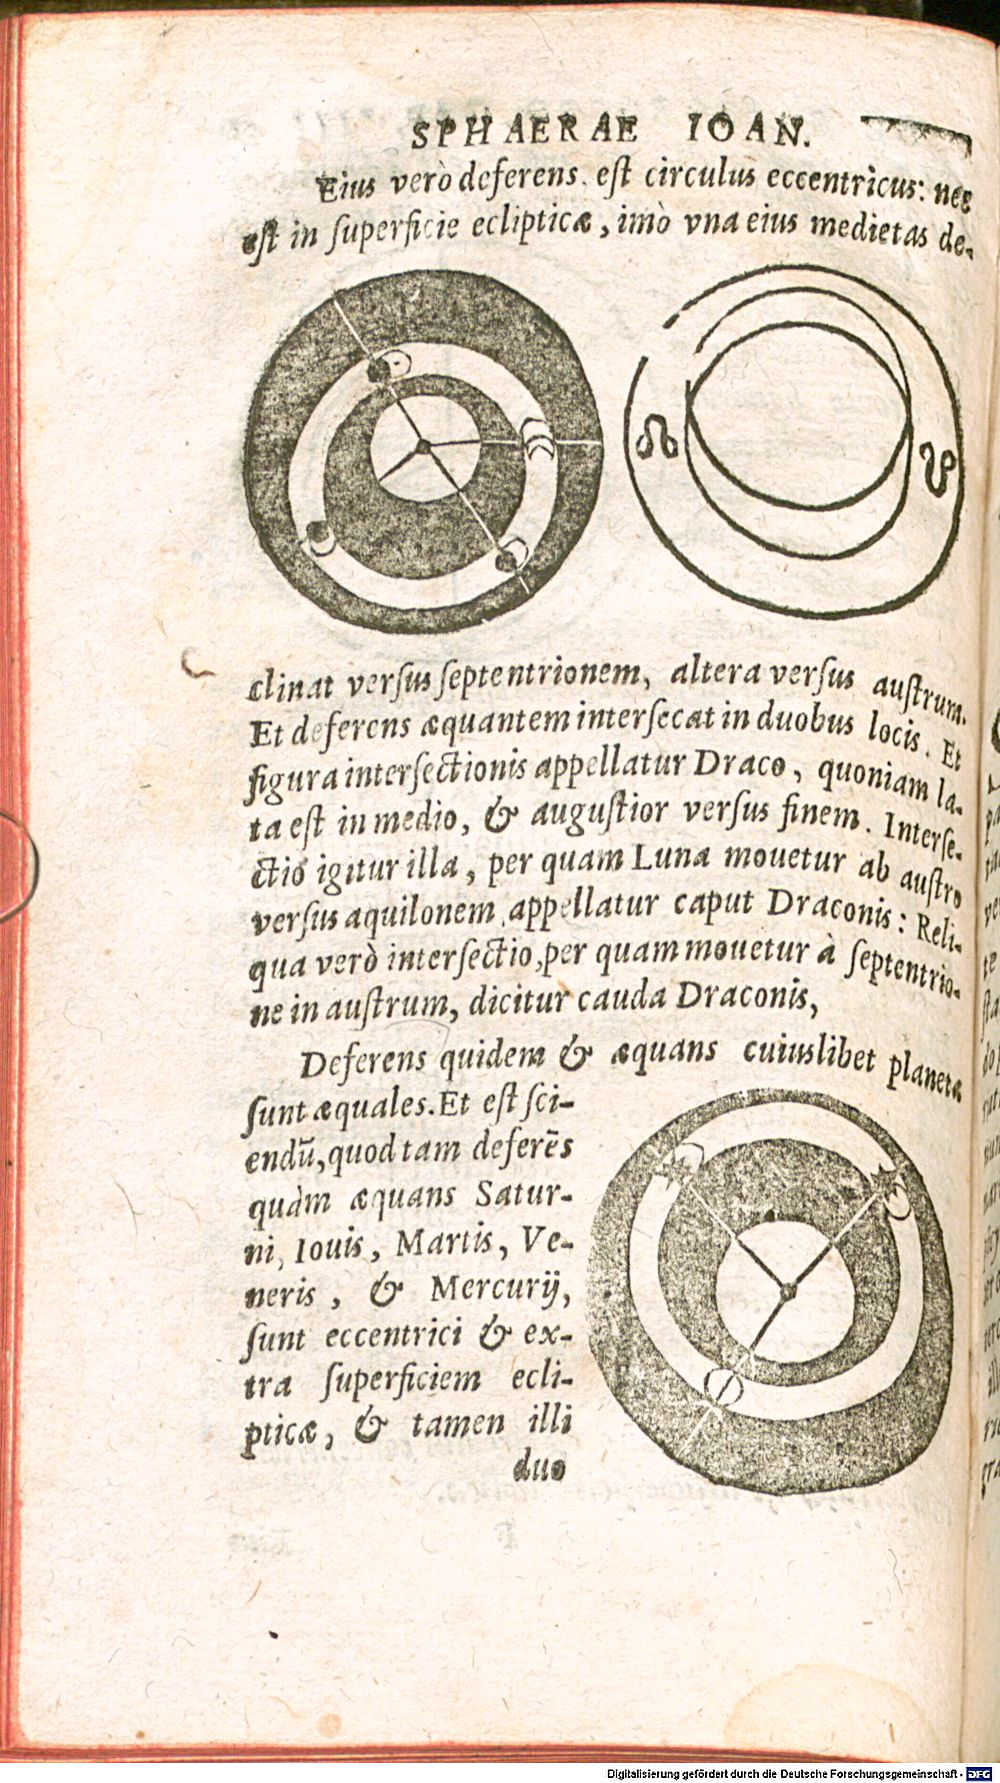 SPHAERAE IOAN.
Eius verò deferens. est circulus eccentricus: nec
est in superficie eclipticæ, imò vna eius medietas de-
☊ ☋
clinat versus septentrionem, altera versus austrum.
Et deferens æquantem intersecat in duobus locis. Et
figura intersectionis appellatur Draco, quoniam la-
ta est in medio, & augustior versus finem. Interse-
ctio igitur illa, per quam Luna mouetur ab austro
versus aquilonem appellatur caput Draconis: Reli-
qua verò intersectio, per quam mouetur à septentrio-
ne in austrum, dicitur cauda Draconis,
Deferens quidem & æquans cuiuslibet planetæ
sunt æquales. Et est sci-
endũ, quod tam deferẽs
quàm æquans Satur-
ni, Iouis, Martis, Ve-
neris, & Mercurij,
sunt eccentrici & ex-
tra superficiem ecli-
pticæ, & tamen illi
duo
Digitalisierung gefördert durch die Deutsche Forschungsgemeinschaft - DFG